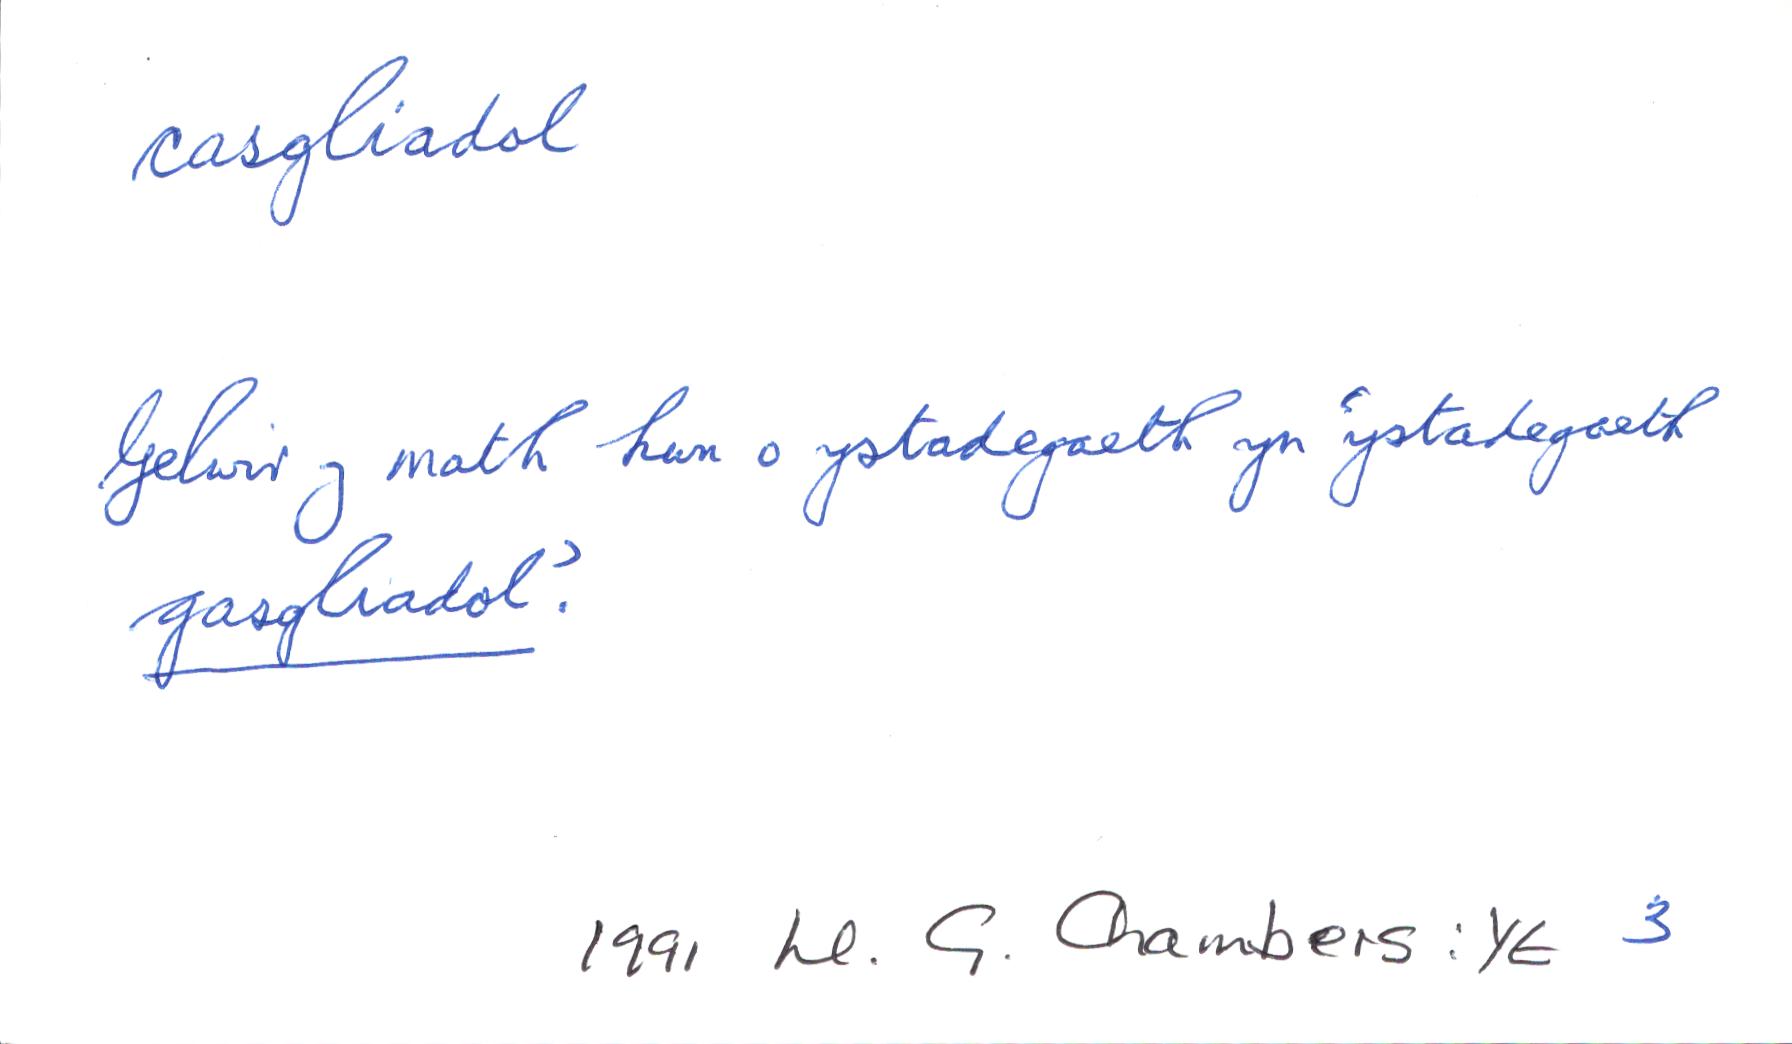 casgliadol
Gelwir y math hwn o ystadegaeth yn 'ystadegaeth
gasgliadol'.
1991 Ll. G. Chambers : YE 3